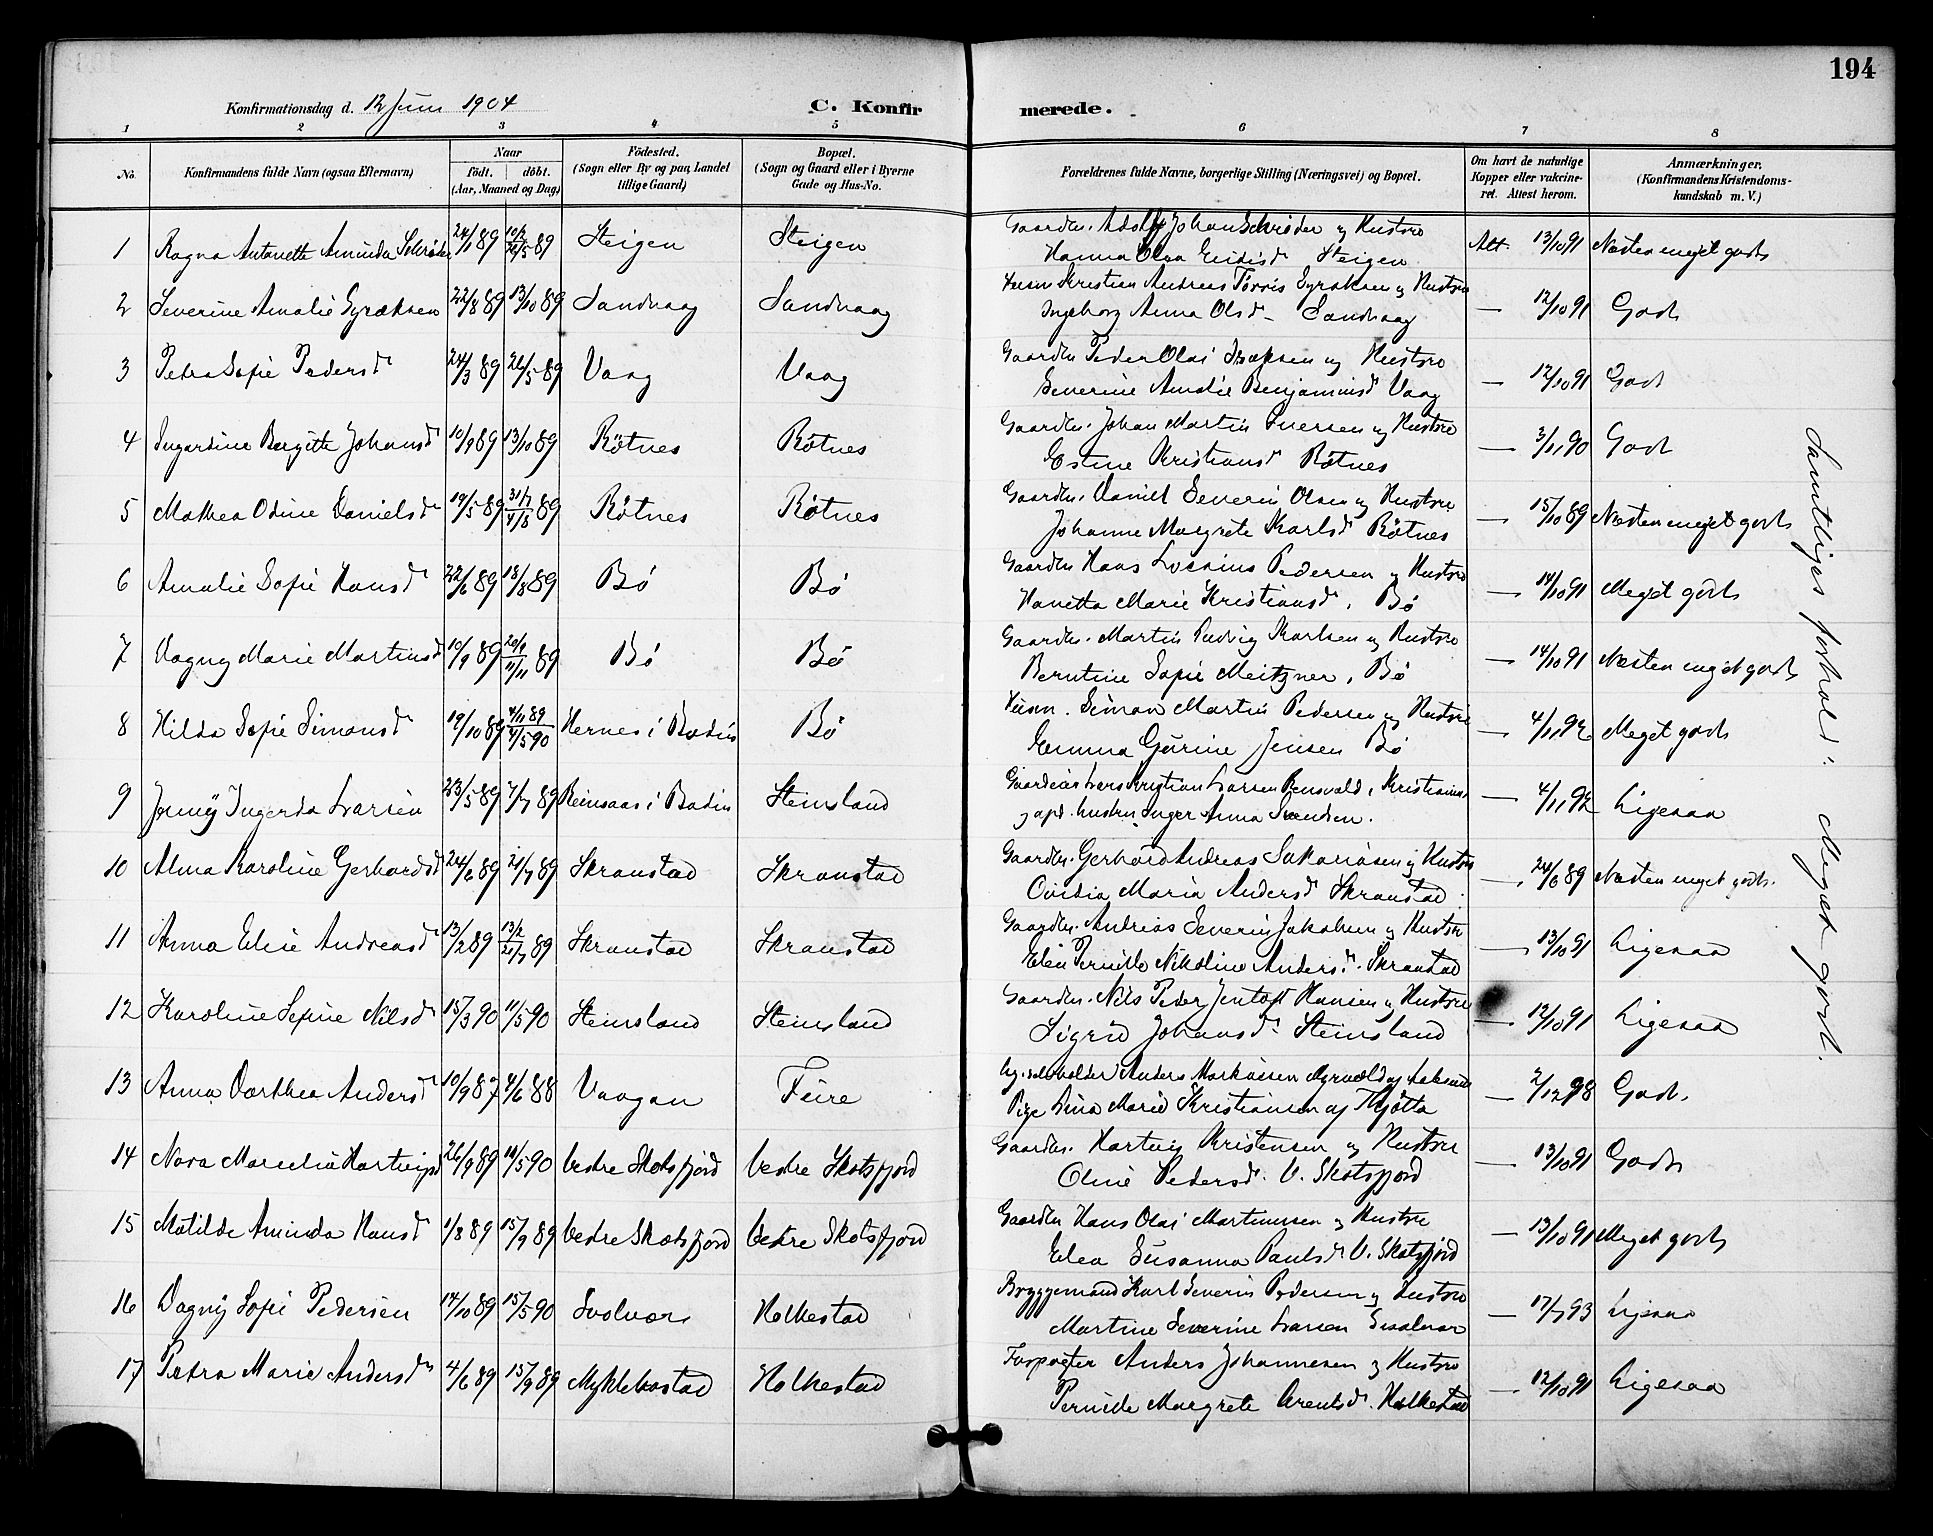 194
Konfirmationsdag d. 12 Juni 1904 C. Konfir merede.
1 2 3 4 5 6 7 8
No. Konfirmandens fulde Navn (ogsaa Efternavn) Naar födt. döbt. (Aar, Maaned og Dag) Födested. (Sogn eller By og paa Landet tillige Gaard) Bopæl. (Sogn og Gaard eller i Byerne Gade og Hus-No. Forældrenes fulde Navne, borgerlige Stilling (Næringsvei) og Bopæl. Om havt de naturlige Kopper eller vaccineret. Attest herom. Anmærkninger. (Konfirmandens Kristendomskundskab m. V.)
1 Ragna Antonette Aminda Schrøder 24/1 89 10/2 26/5 89 Steigen Steigen Gaardbr. Adolf Johan Schrøder og Hustro Att. 13/10 91 Næsten meget godt
Hanna Olea Steigen
2 Severine Amalie Syvertsen 22/8 89 13/10 89 Sandvaag Sandvaag Kristian Andreas og Hustro
Ingeborg Anna Olsd. Sandvaag — 12/10 91 Godt
3 Petra Sofie Pedersd 24/3 89 26/5 89 Vaag Vaag Gaardbr Peder Olai Isaksen og Hustro
Severine Amalie Benjaminsd Vaag — 12/10 91 Godt
4 Ingardine Bergitte Johansd 10/9 89 13/10 89 Røtnes Røtnes Gaardbr. Johan Martin Iversen og Hustro
Estine Kristiansd Røtnes — 3/11 90 Godt
5 Mathea Odine Danielsd 19/5 89 31/7 4/8 89 Røtnes Røtnes Gaardbr. Daniel Severin Olsen og Hustro
Johanne Margrete Karlsd Røtnes — 15/10 89 Næsten meget godt
6 Amalie Sofie Hansd 22/6 89 18/8 89 Bø Bø Gaardbr Hans Pedersen og Hustro
Hanetta Marie Kristiansd. Bø — 14/10 91 Meget godt
7 Dagny Marie Martinsd 10/9 89 20/9 11/11 89 Bø Bø Gaardbr. Martin Ludvig Karlsen og Hustro
Berntine Sofie Meitzner, Bø — 14/10 91 Næsten meget godt
8 Hilda Sofie Simonsd 19/10 89 4/11 89 4/5 90 Hernes i Bodin Bø Simon Martin Pedersen og Hustro
Emma Gurine Jensen Bø — 4/11 92 Meget godt
9 Jenny Ingerda Larsen 23/5 89 7/7 89 Reinsaas i Bodin Steinsland Lars Kristian Larsen
Inger Anna Svendsen. — 4/11 92 Ligesaa
10 Alma Karoline Gerhardsd 24/6 89 21/7 89 Skranstad Skranstad Gaardbr. Gerhard Andreas Sakariasen og Hustro
Ovidia Maria Andersd Skranstad — 24/8 89 Næsten meget godt.
11 Anna Elie Andreasd 13/2 89 13/2 21/7 89 Skranstad Skranstad Gaardbr. Andreas Severin Jakobsen og Hustro
Elen Pernille Nikoline Andersd. Skranstad — 13/10 91 Ligesaa
12 Karoline Sofie Nilsd 15/3 90 11/5 90 Steinsland Steinsland Gaardbr. Nils Peder Jentoft Hansen og Hustro
Sigrid Johansd Steinsland — 12/10 91 Ligesaa
13 Anna Dorthea Andersd 10/9 87 4/6 88 Vaagan Feire Anders Markussen
Pige Lina Marie Kristiansen af Tjøtta — 2/12 98 Godt.
14 Nora Marelia Hartvigsd 26/9 89 11/5 90 Vestre Skotsfjord Vestre Skotsfjord Gaardbr. Hartvig Kristensen og Hustro
Oline Pedersd. V. Skotsfjord — 13/10 91 Godt
15 Matilde Aminda Hansd 1/8 89 15/9 89 Vestre Skotsfjord Vestre Skotsfjord Gaardbr Hans Olai Martinussen og Hustro
Elea Susanna Paulsd V. Skotsfjord — 13/10 91 Meget godt
16 Dagny Sofie Pedersen 14/10 89 15/5 90 Svolvær Holkestad Bryggemand Karl Severin Pedersen og Hustro
Martine Severine Larsen Svolvær — 17/7 93 Ligesaa
17 Petra Marie Andersd 4/6 89 15/9 89 Myklebostad Holkestad Forpagter Anders Johannesen og Hustro
Pernille Margrete Arentsd. Holkestad — 12/10 91 Ligesaa
Samtliges forhold: Meget godt.